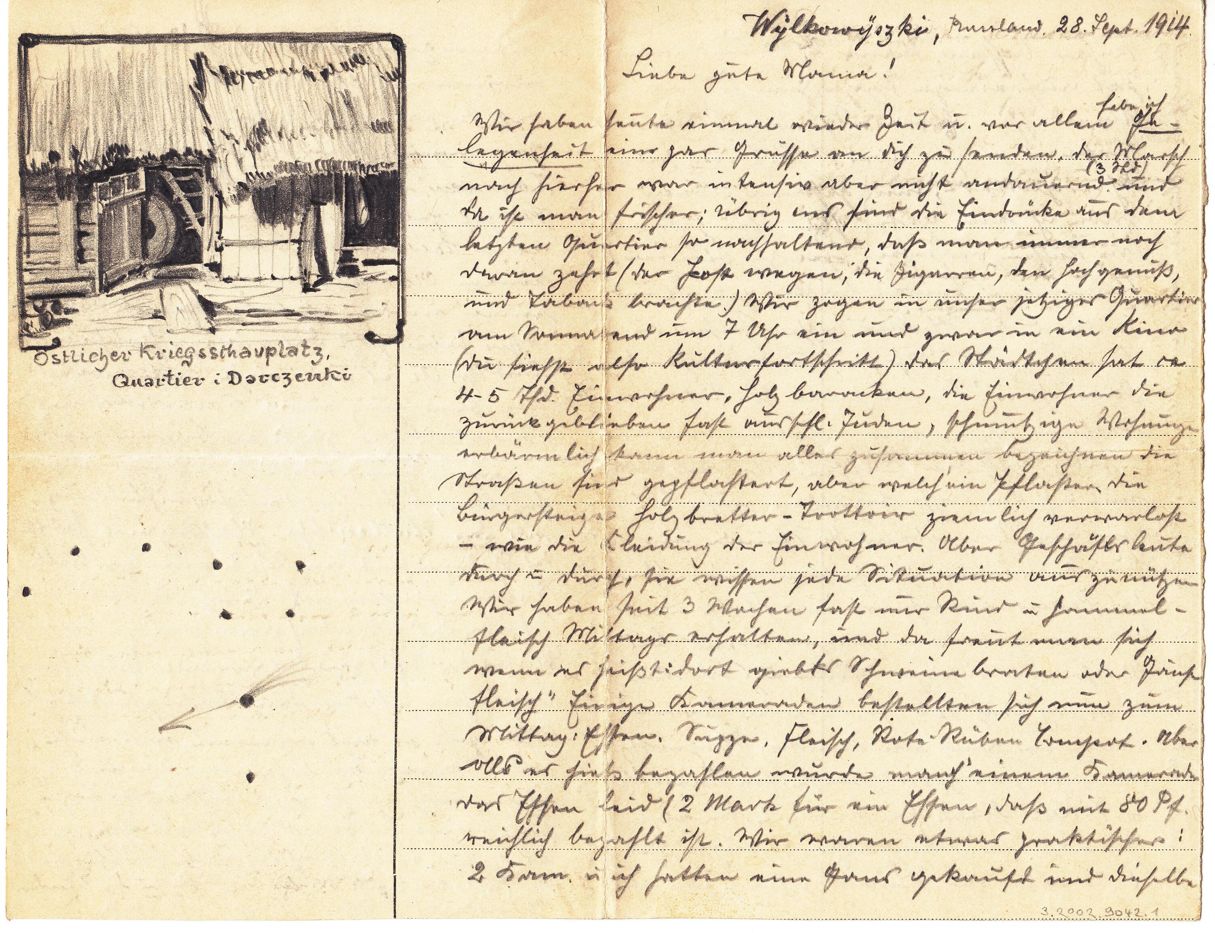 Wylkowyszki, Russland. 28. Sept. 1914.
Liebe gute Mama!
Wir haben heute einmal wieder Zeit u. vor allem habe ich Ge-
legenheit ein par Grüsse an dich zu senden, der Marsch
nach hierher war intensiv aber nicht andauernd (3 Std) und
da ist man frischer; übrigens sind die Eindrücke aus dem
letzten Quartier so nachhaltend, daß man immer noch
daran zehrt (der Post wegen, die Zigarren, den Hochgenuß,
und Taback brachte.) Wir zogen in unser jetziges Quartier
am Sonnabend um 7 Uhr ein und zwar in ein Kino
(du siehst also Kulturfortschritt) das Städtchen hat ca
4-5 Tsd. Einwohner, Holzbaracken, die Einwohner die
zurückgeblieben fast ausschl. Juden, schmutzige Wohnunge
erbärmlich kann man alles zusammen bezeichnen die
Straßen sind gepflastert, aber welch ein Pflaster, die
Bürgersteige Holzbretter-Trottoir ziemlich verwarlost
- wie die Kleidung der Einwohner. Aber Geschäftsleute
durch u durch, sie wissen jede Situation auszunützen
Wir haben seit 3 Wochen fast nur Rind u Hammel-
fleisch Mittags erhalten, und da freut man sich
wenn es heißt: dort giebts Schweinebraten oder Gänse
fleisch" Einige Kameraden bestellten sich nun zum
Mittag: Essen. Suppe, Fleisch, Rote Rüben Compot. Aber
Alls es hieß bezahlen wurde manch' einem Kamerade
das Essen leid (2 Mark für ein Essen, daß mit 80 Pf.
reichlich bezahlt ist. Wir waren etwas praktischer:
2 Kam. u ich hatten eine Gans gekauft und dieselbe
Östlicher Kriegsschauplatz,
Quartier i Darczenski
3.2002.9042.1